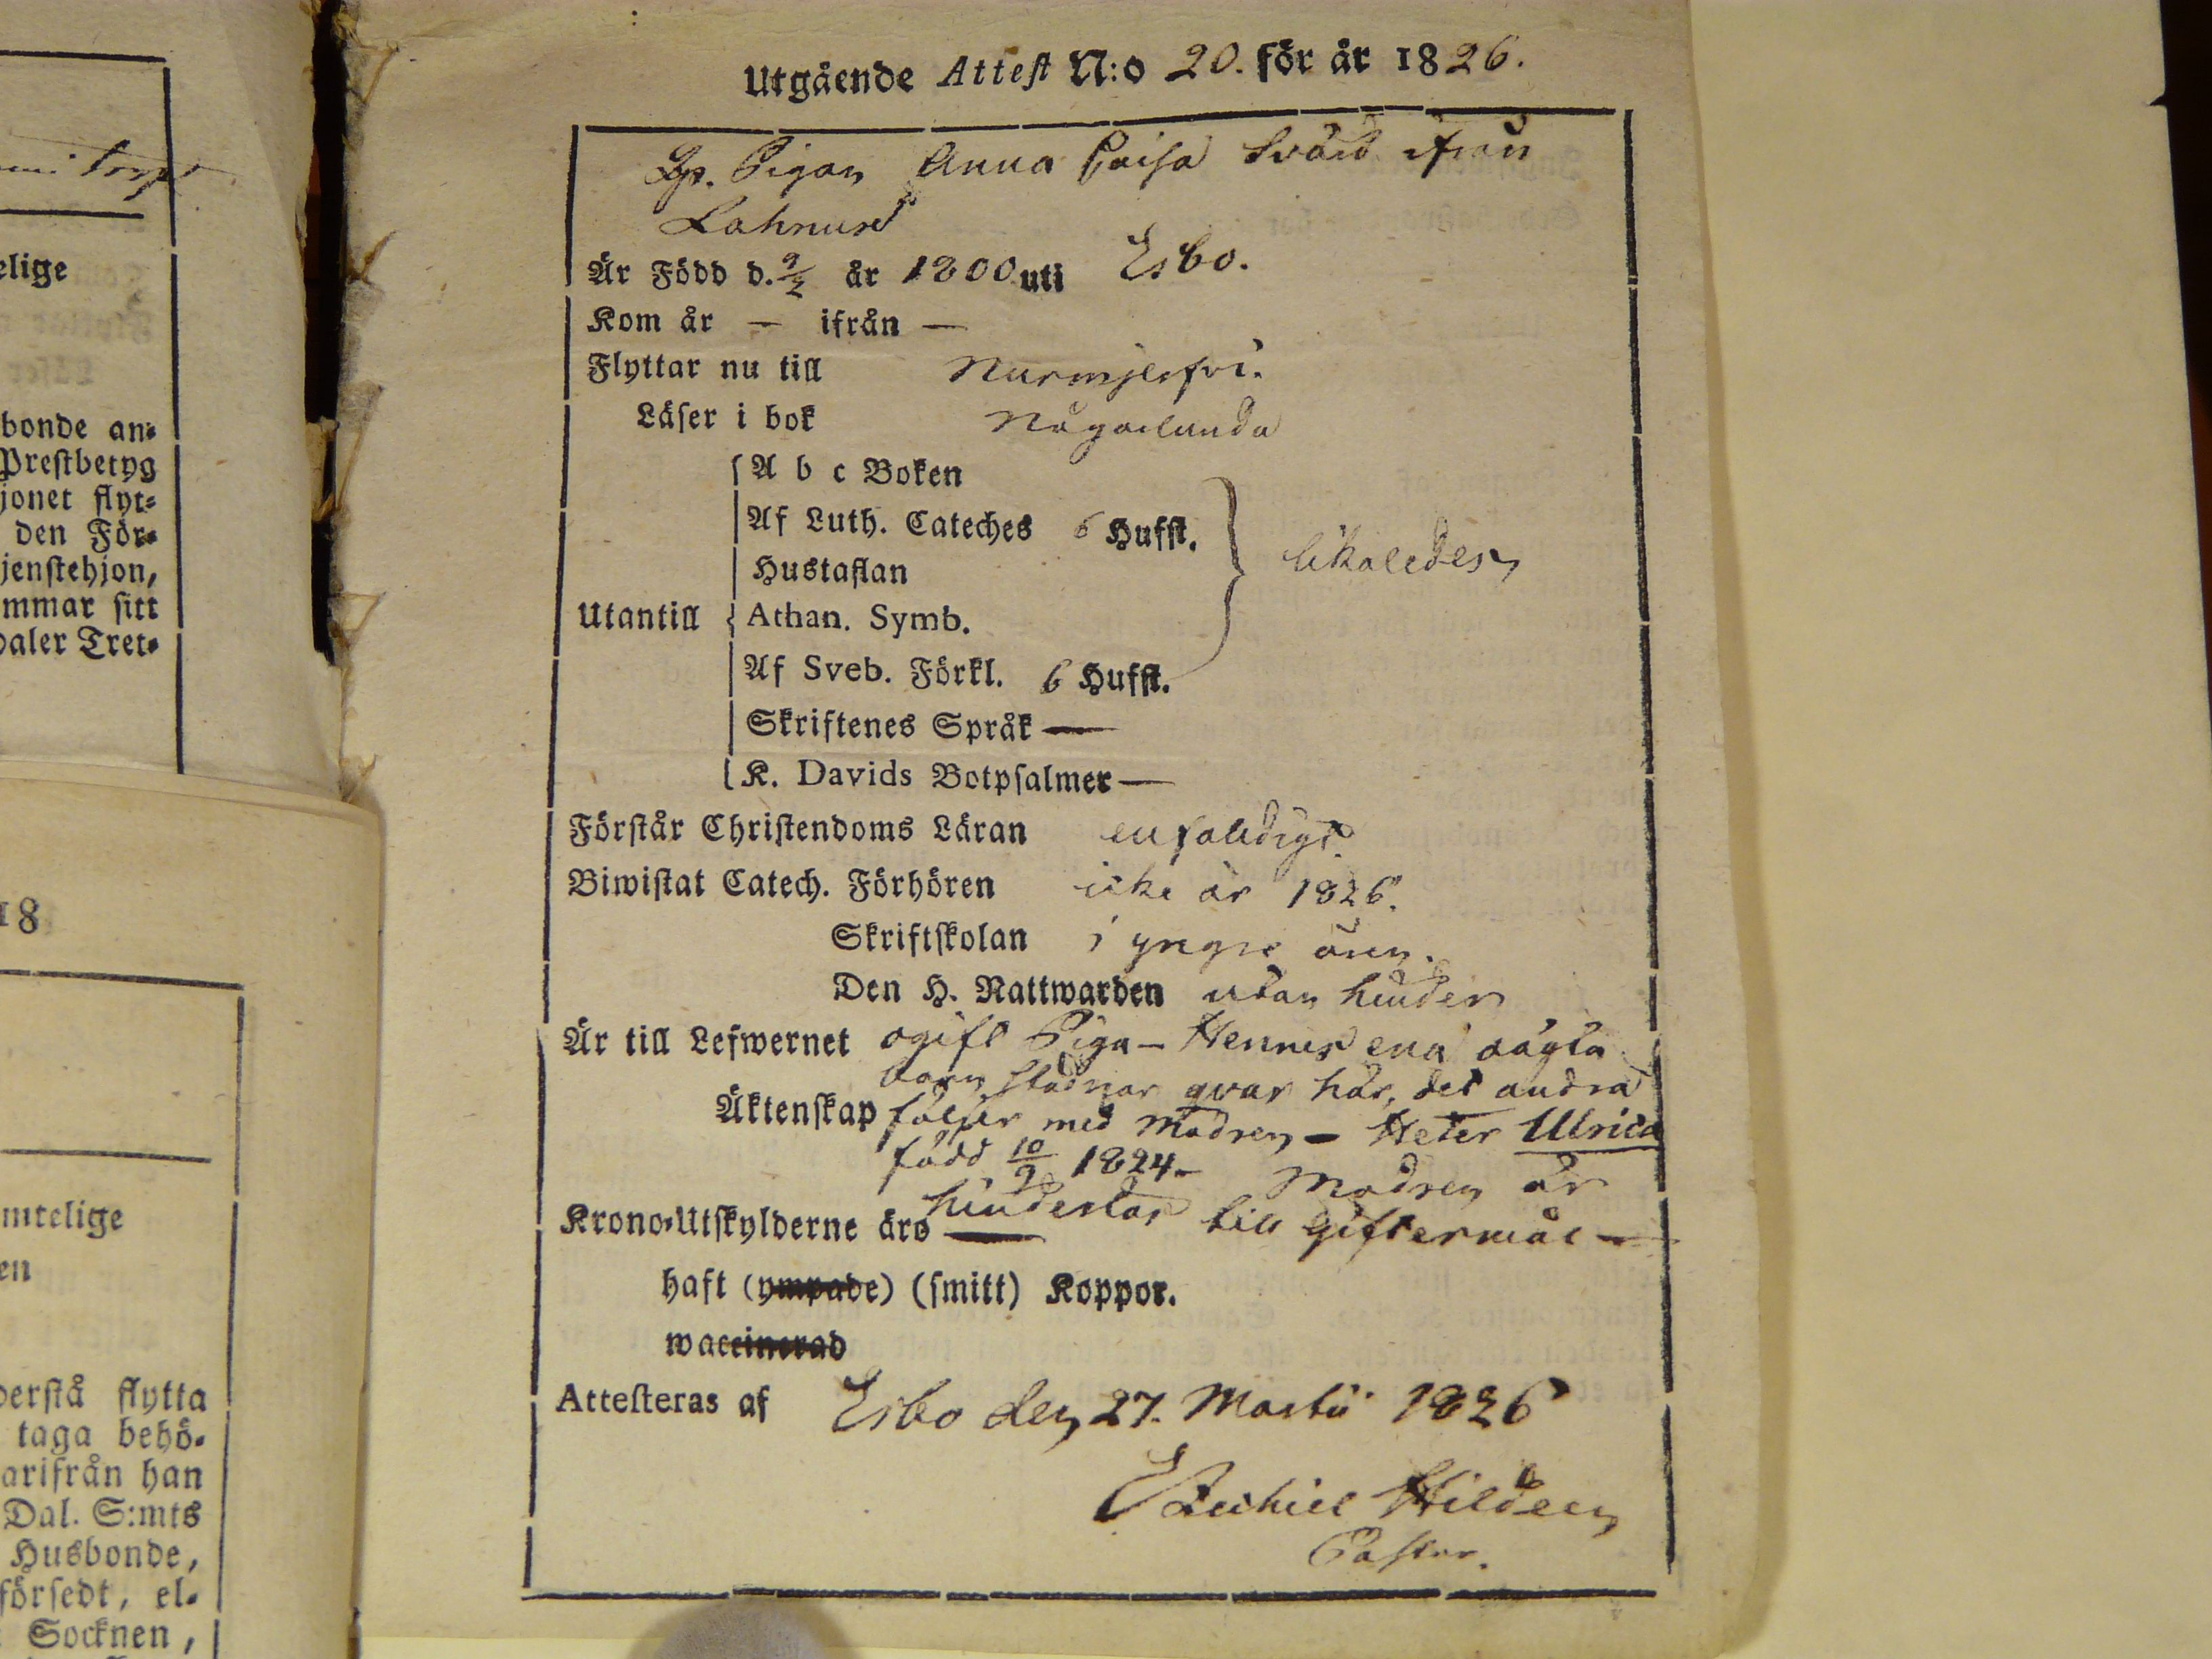 Utgående Attest N:o 20. för år 1826.
Pigan Anna Caisa Svärd ifrån
Lahnus
Är Född d. 9/2 år 1800 uti Esbo.
Kom år — ifrån —
Flyttar nu till Nurmijerfvi.
Läser i bok Någorlunda
A b c Boken
Af Luth. Cateches 6 Hufst.
Hustaflan
likaledes
Utantill Athan. Symb.
Af Sveb. Förkl. 6 Hufst.
Skriftenes Språk —
K. Davids Botpsalmer —
Förstår Christendoms Läran enfaldigt.
Biwistat Catech. Förhören icke år 1826.
Skriftskolan i yngre åren.
Den H. Nattwarden utan hinder
Är till Lefwernet ogift Piga — Hennes ena oägta
barn stadnar qvar här, det andra
Äktenskap följer med Modren — Heter Ulrica
född 10/9 1824 — Modren är
hinderlös till Giftermål —
Krono-Utskylderne äro —
haft (ympade) (smitt) Koppor.
waccinerad
Attesteras af Esbo den 27. Martii 1826
Ezechiel Hildeen
Pastor.
torp
elige
bonde an-
Prestbetyg
jonet flyt-
den För-
jenstehjon,
mmar sitt
daler Tret-
18
mtelige
en
derstå flytta
taga behö-
arifrån han
Dal. S:mts
Husbonde,
försedt, el-
Socknen,